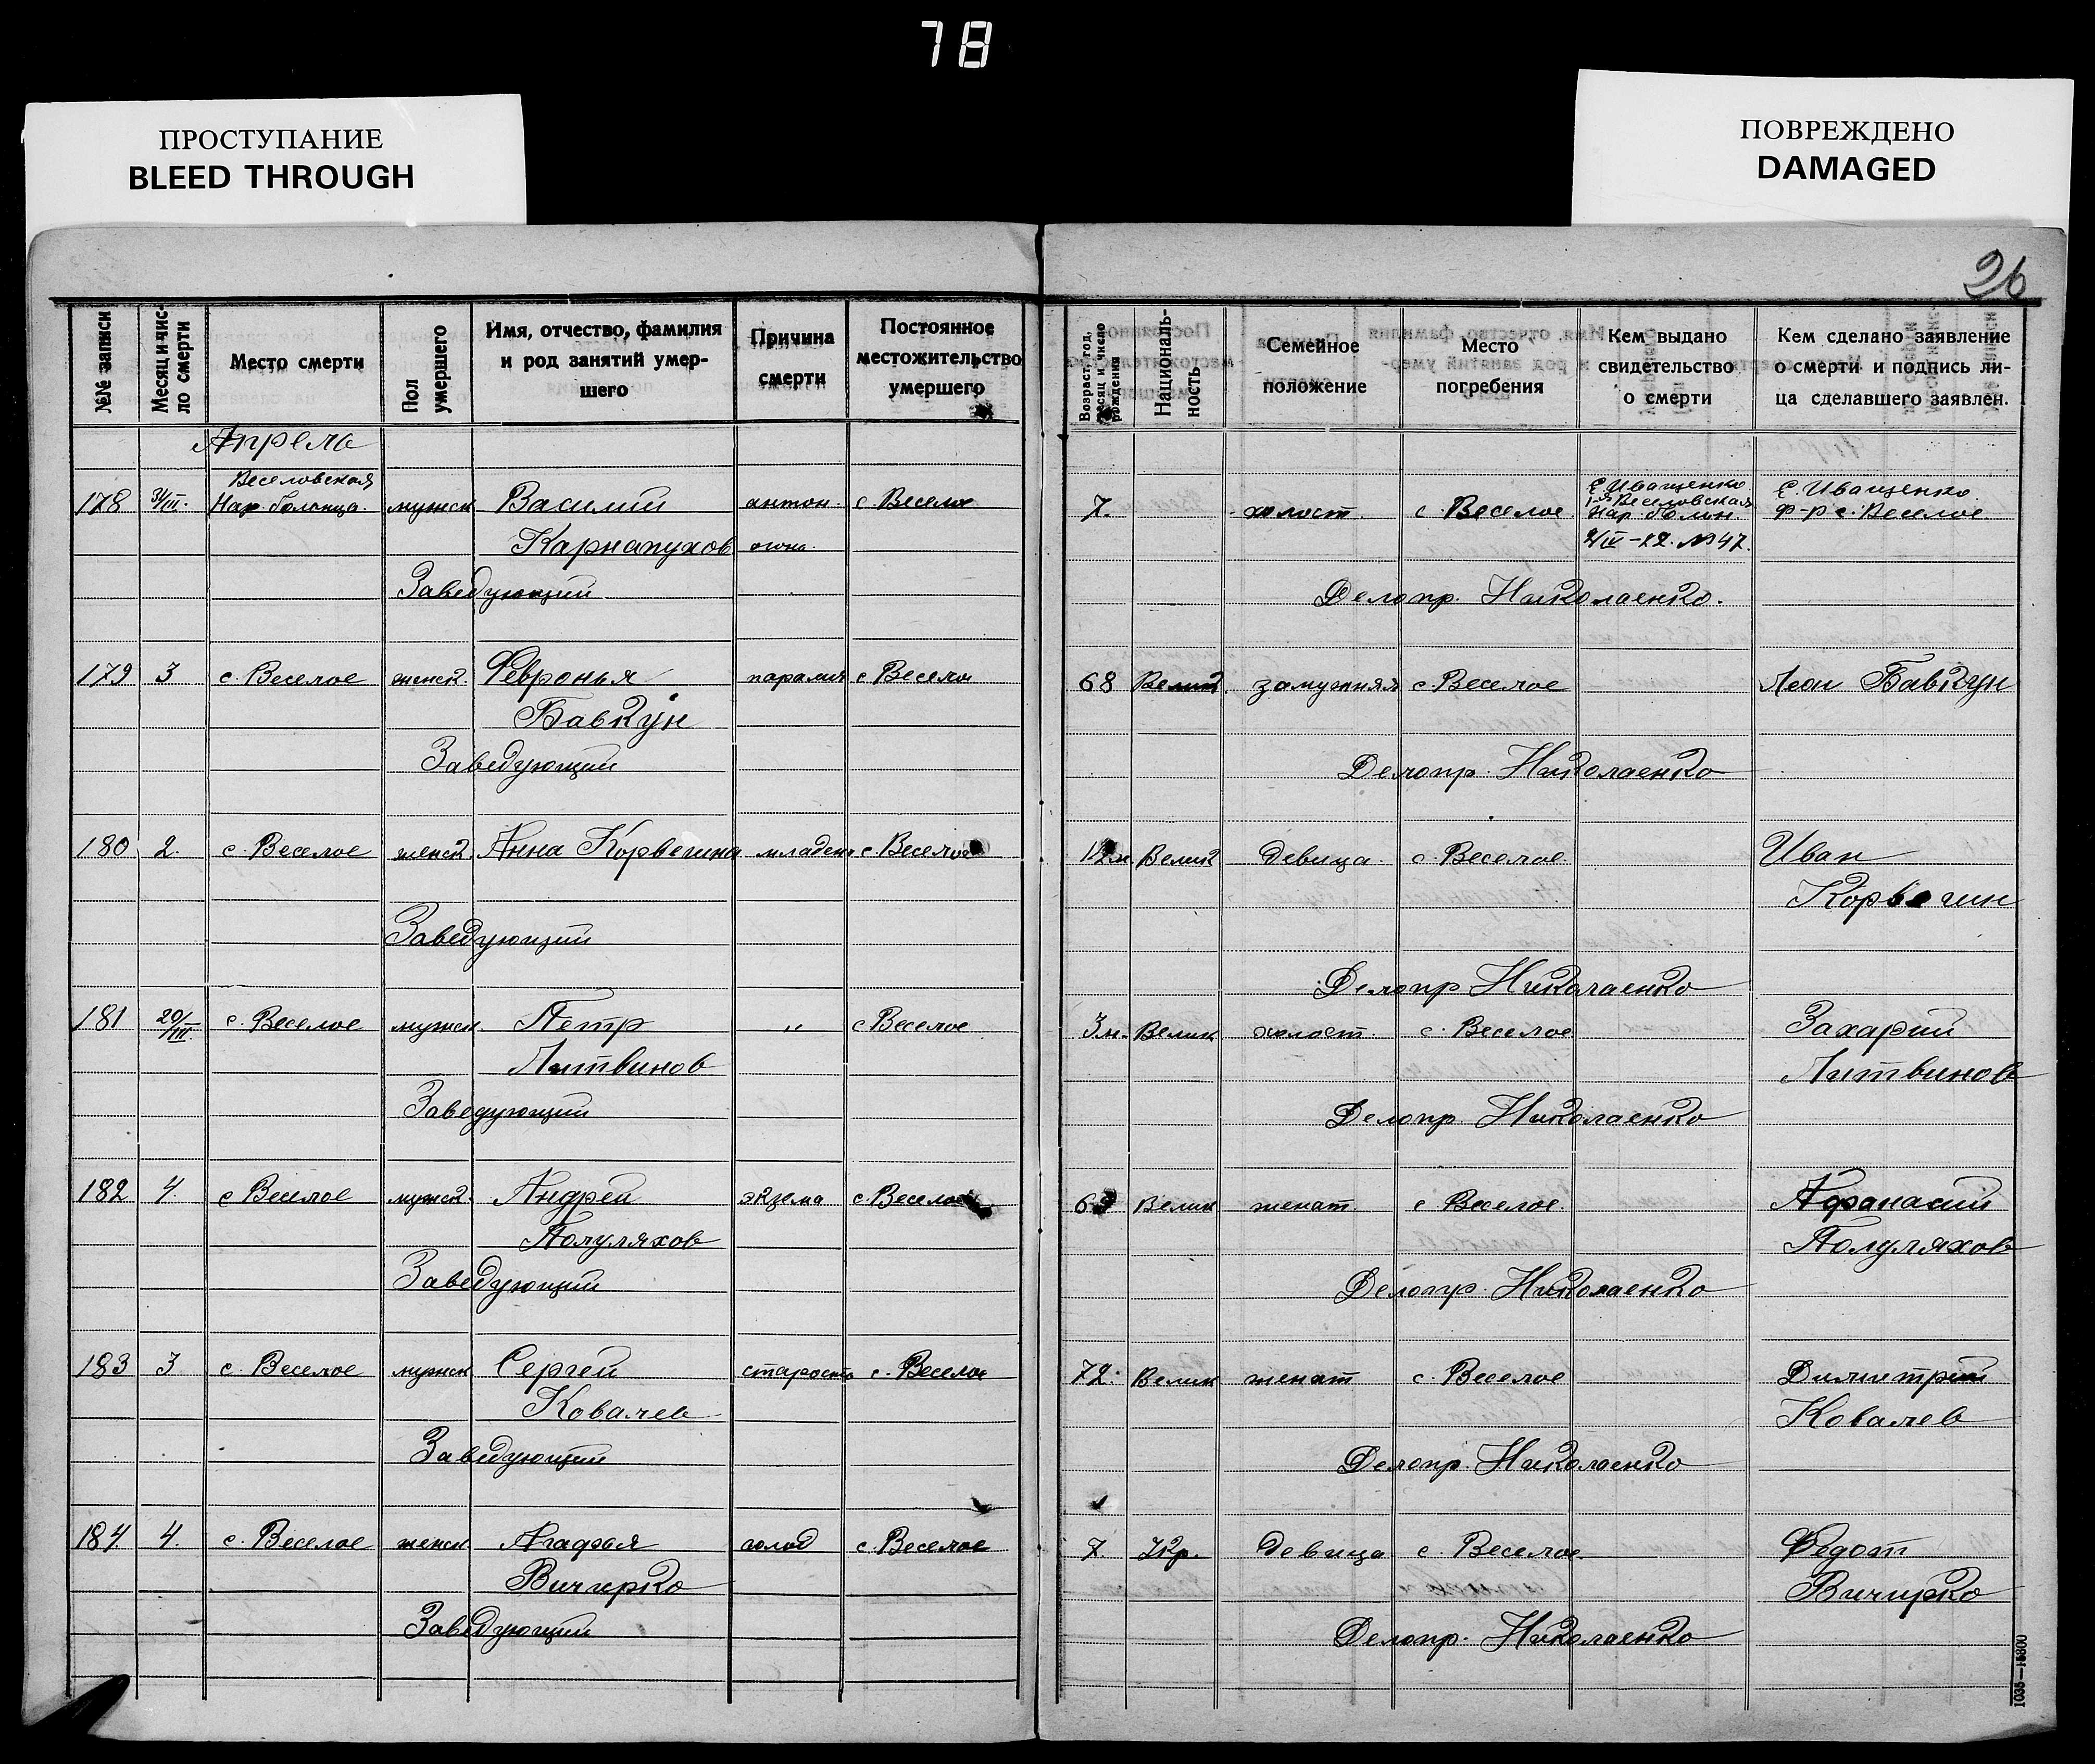 78
ПРОСТУПАНИЕ
BLEED THROUGH
ПОВРЕЖДЕНО
DAMAGED
26
№№ записи
Месяц и чис-
ло смерти
Место смерти
Пол
умершего
Имя, отчество, фамилия
и род занятий умер-
шего
Причина
смерти
Постоянное
местожительство
умершего
Возраст, год,
месяц и число
рождения
Националь-
ность
Семейное
положение
Место
погребения
Кем выдано
свидетельство
о смерти
Кем сделано заявление
о смерти и подпись ли-
ца сделавшего заявлен.
Апрель
Веселовская
178 31/III. Нар. больница. мужск Василий антон. с Веселое 7. холост. с. Веселое
Карнапухов огонь.
Е. Иващенко
1-я Веселовская
Нар. больн.
2/IV-22. №47.
Е. Иващенко
Ф-р с. Веселое
Заведующий Делопр. Николаенко.
179 3 с. Веселое женск. Февронья паралич с Веселое 68 Велик. замужняя с Веселое Леон Бавкун
Бавкун
Заведующий Делопр. Николаенко
180 2. с. Веселое женск. Анна Корвегина младен с Веселое Велик девица. с. Веселое Иван
Корвегин
Заведующий
Делопр Николаенко
181 20/III. с. Веселое мужск. Петр " с Веселое 3 н. Велик холост. с. Веселое Захарий
Литвинов Литвинов
Заведующий Делопр. Николаенко
182 4. с Веселое мужск. Андрей экзема с. Веселое Велик женат. с Веселое. Афанасий
Полуляхов Полуляхов
Заведующий Делопр. Николаенко
183 3 с. Веселое мужск Сергей старость с. Веселое 72. Велик женат с. Веселое Димитрий
Ковалев Ковалев
Заведующий Делопр. Николаенко
184. 4. с. Веселое женск Агафья голод с. Веселое 7. Укр. девица с. Веселое. Федот
Вичирко Вичирко
Заведующий Делопр. Николаенко
1035—15800